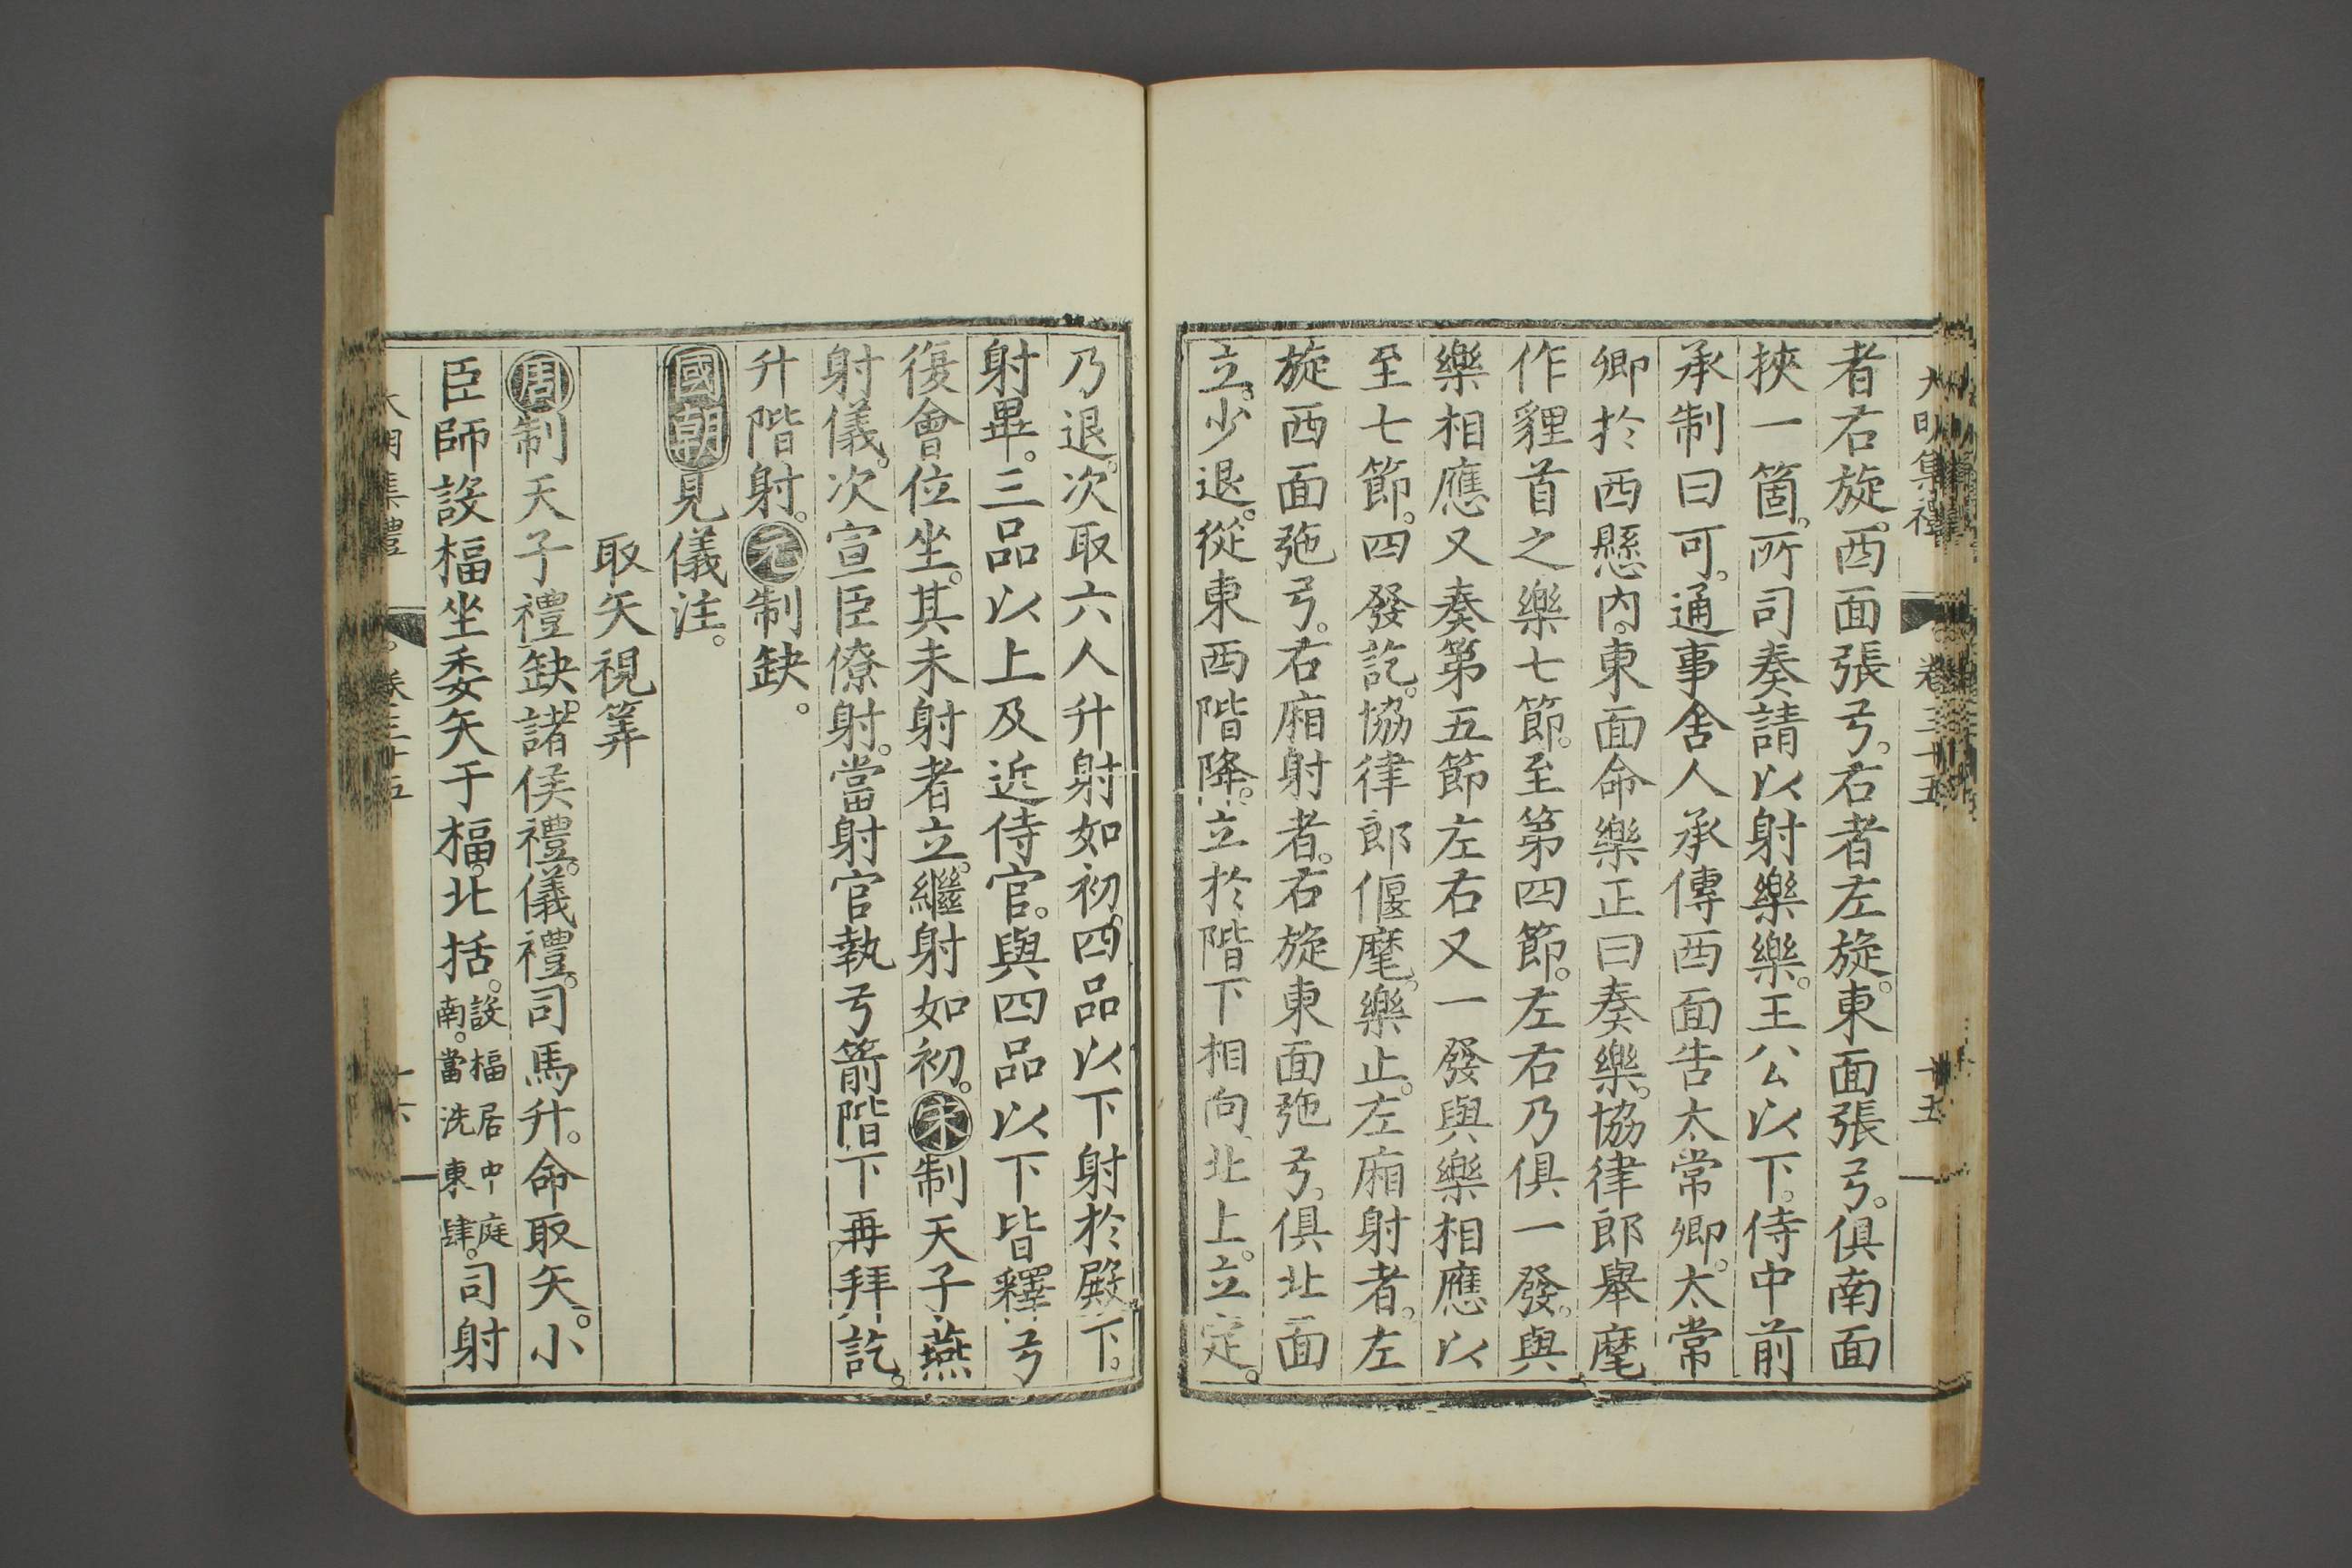 大明集禮 卷三十五 十五
者右旋。西面張弓。右者左旋。東面張弓。俱南面
挾一箇。所司奏請以射樂樂。王公以下。侍中前
承制曰可。通事舍人承傳西面告太常卿。太常
卿於西懸內。東面命樂正曰奏樂。協律郎舉麾
作貍首之樂七節。至第四節。左右乃俱一發。與
樂相應又奏第五節左右又一發與樂相應以
至七節。四發訖。協律郎偃麾。樂止。左廂射者。左
旋西面弛弓。右廂射者。右旋東面弛弓。俱北面
立。少退。從東西階降。立於階下相向北上。立定。
乃退。次取六人升射如初。四品以下射於殿下。
射畢。三品以上及近侍官。與四品以下皆釋弓
復會位坐。其未射者立。繼射如初。宋制天子燕
射儀。次宣臣僚射。當射官執弓箭階下再拜訖。
升階射。元制缺。
國朝見儀注。
取矢視筭
周制天子禮缺。諸侯禮。儀禮。司馬升。命取矢。小
臣師設楅坐委矢于楅。北括。設楅居中庭南。當洗東肆。司射
大明集禮 卷三十五 十六